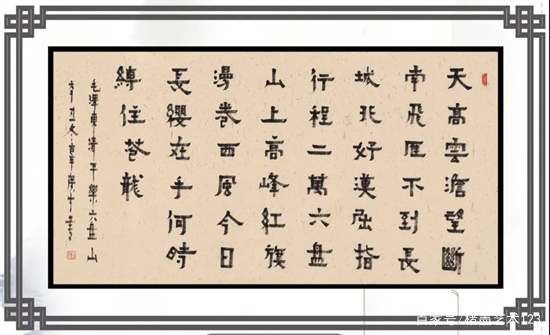 天高雲澹望斷
南飛雁不到長
城非好漢屈指
行程二萬六盤
山上高峰紅旗
漫卷西風今日
長纓在手何時
縛住蒼龍
毛澤東清平樂六盤山
辛丑冬書
百家号/艺术123